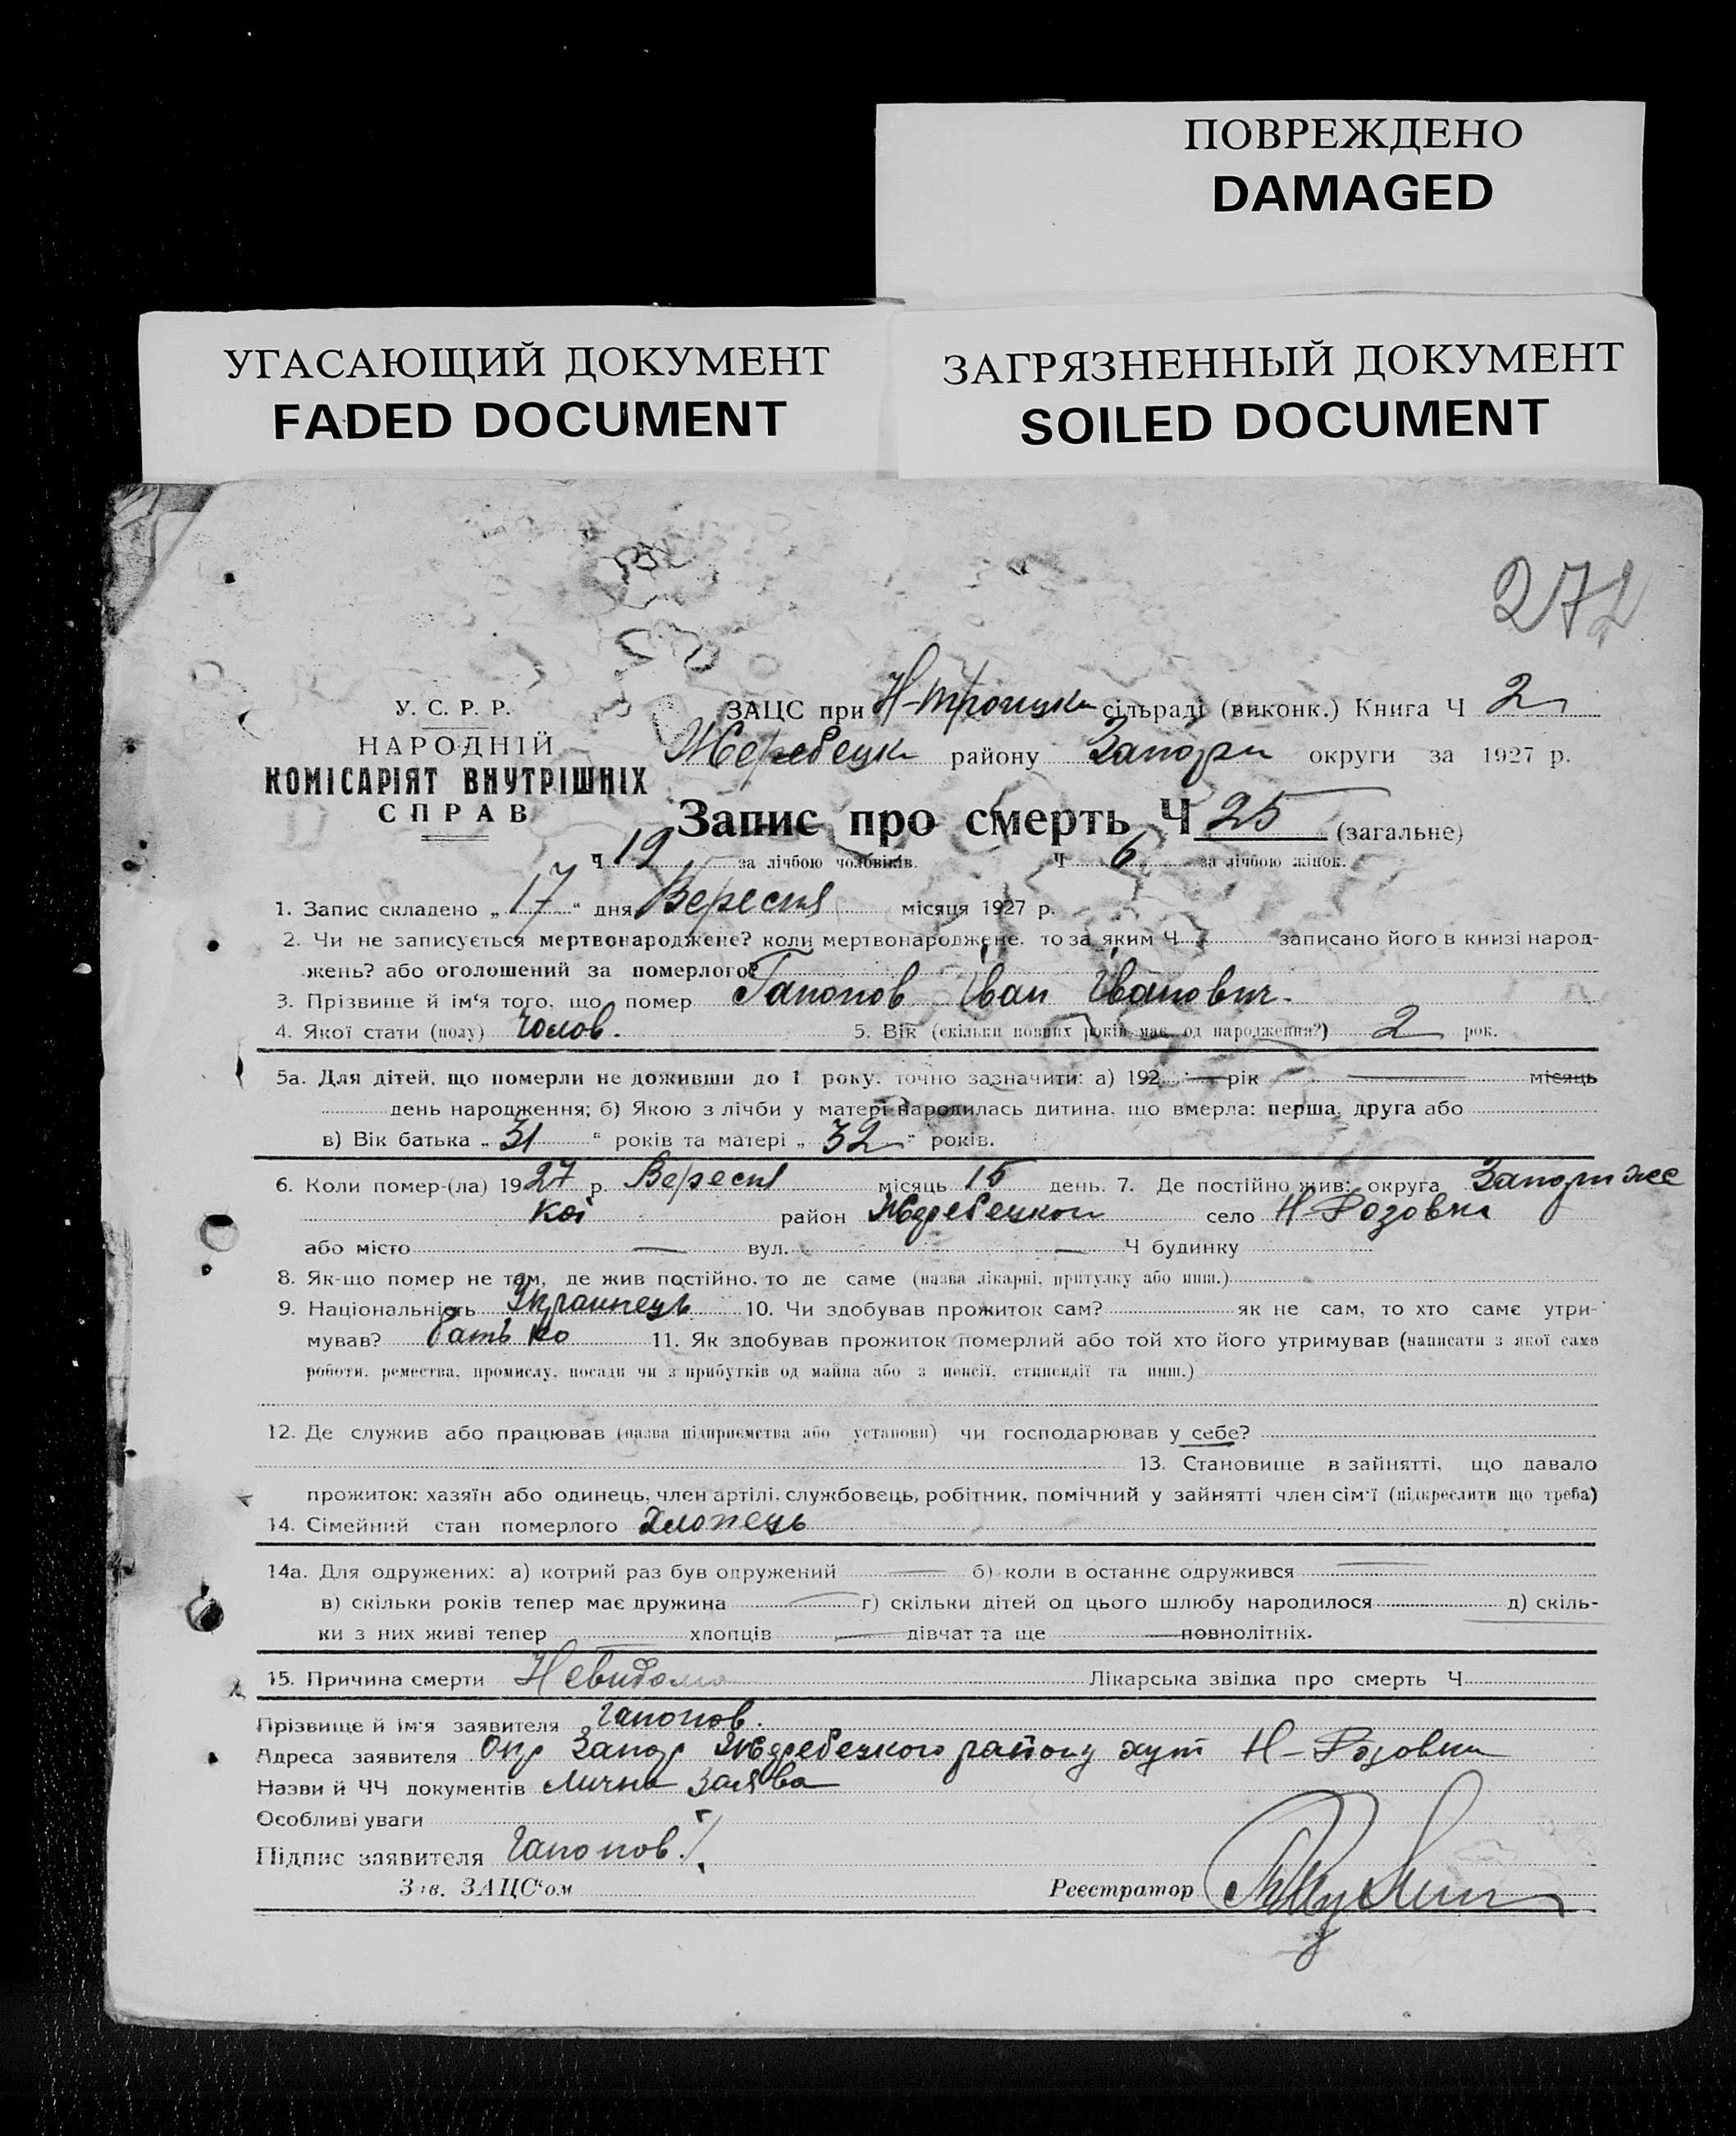 ПОВРЕЖДЕНО
DAMAGED
УГАСАЮЩИЙ ДОКУМЕНТ
FADED DOCUMENT
ЗАГРЯЗНЕННЫЙ ДОКУМЕНТ
SOILED DOCUMENT
272
У. С. Р. Р.
НАРОДНІЙ
КОМІСАРІЯТ ВНУТРІШНІХ
СПРАВ
ЗАЦС при Н-Троицкий сільраді (виконк.) Книга Ч 2
Жеребецк району Запорж округи за 1927 р.
Запис про смерть Ч 25 (загальне)
Ч 19 за лічбою чоловіків. Ч 6 за лічбою жінок.
1. Запис складено „ 17 “ дня Вересня місяця 1927 р.
2. Чи не записується мертвонароджене? коли мертвонароджене, то за яким Ч записано його в книзі народ-
жень? або оголошений за померлого?
3. Прізвище й ім'я того, що помер Гапонов Іван Іванович.
4. Якої стати (полу) Чолов. 5. Вік (скільки повних років має од народження?) 2 рок.
5а. Для дітей, що померли не доживши до 1 року, точно зазначити: а) 192 рік місяць
день народження; б) Якою з лічби у матері народилась дитина, що вмерла: перша, друга або
в) Вік батька „ 31 “ років та матері „ 32 “ років.
6. Коли помер-(ла) 1927 р. Вересня місяць 15 день. 7. Де постійно жив: округа Запоріжс
кої район Жеребецкой село Н-Розовка
або місто — вул. — Ч будинку
8. Як-що помер не там, де жив постійно, то де саме (назва лікарні, притулку або инш.)
9. Національність Українець 10. Чи здобував прожиток сам? як не сам, то хто саме утри-
мував? Батько 11. Як здобував прожиток померлий або той хто його утримував (написати з якої саме
роботи, ремества, промислу, посади чи з прибутків од майна або з пенсії, стипендії та инш.)
12. Де служив або працював (назва підприємства або установи) чи господарював у себе?
13. Становище в зайнятті, що давало
прожиток: хазяїн або одинець, член артілі, службовець, робітник, помічний у зайнятті член сім'ї (підкреслити що треба)
14. Сімейний стан померлого Хлопець
14а. Для одружених: а) котрий раз був одружений — б) коли в останнє одружився —
в) скільки років тепер має дружина — г) скільки дітей од цього шлюбу народилося д) скіль-
ки з них живі тепер хлопців — дівчат та ще — повнолітніх.
15. Причина смерти Невидомо Лікарська звідка про смерть Ч
Прізвище й ім'я заявителя Гапонов.
Адреса заявителя Окр Запор Жеребецкого району хут Н-Розовка
Назви й ЧЧ документів Лична Заява
Особливі уваги
Підпис заявителя Гапонов.
Зав. ЗАЦС'ом Реєстратор